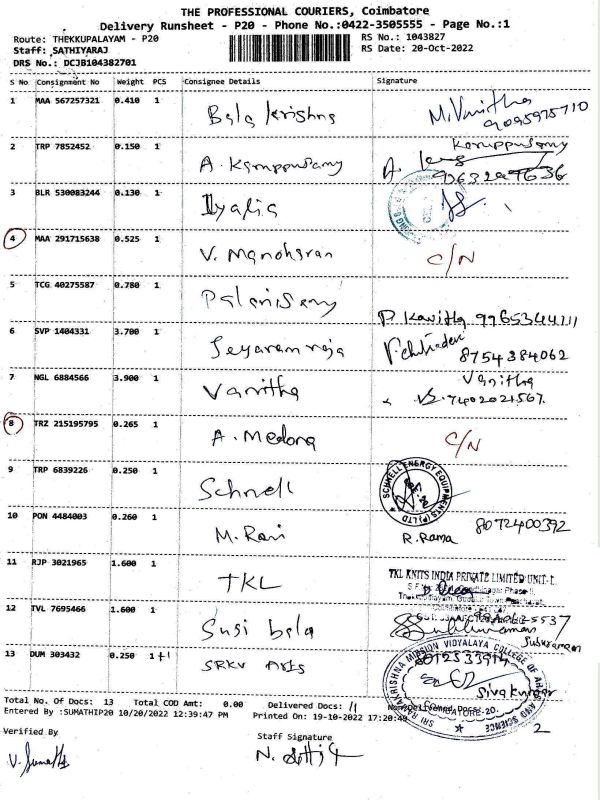 THE PROFESSIONAL COURIERS, Coimbatore
Delivery Runsheet - P20 - Phone No.:0422-3505555 - Page No.:1
Route: THEKKUPALAYAM - P20
RS No.: 1043827
Staff: SATHIYARAJ
RS Date: 20-Oct-2022
DRS No.: DCJB104382701
S No Consignment No Weight PCS Consignee Details Signature
1 MAA 567257321 0.410 1 Bala krishna M.Vanitha
9095975710
2 TRP 7852452 0.150 1 A. Karuppusamy Karuppusamy
3 BLR 530083244 0.130 1 Ilyalia
4 MAA 291715638 0.525 1 V. Manoharan C/N
5 TCG 40275587 0.780 1 Palanisamy P. Kavitha
6 SVP 1404331 3.700 1 Jeyaram raja 8754384062
7 NGL 6884566 3.900 1 Vanitha Vanitha
7402021567
8 TRZ 215195795 0.265 1 A. Medona C/N
9 TRP 6839226 0.250 1 Schnell SCHNELL ENERGY EQUIPMENTS (P) LTD
10 PON 4484003 0.260 1 M. Ravi R. Rama 8072400392
11 RJP 3021965 1.600 1 TKL TKL KNITS INDIA PRIVATE LIMITED UNIT-I.
12 TVL 7695466 1.600 1 Susi bala
13 DUM 303432 0.250 1+1 SRKV Arts Sivakumar
SRI RAMAKRISHNA MISSION VIDYALAYA COLLEGE OF ARTS AND SCIENCE
COIMBATORE-20.
Total No. Of Docs: 13 Total COD Amt: 0.00 Delivered Docs: 11 2
Entered By :SUMATHIP20 10/20/2022 12:39:47 PM Printed On: 19-10-2022 17:20:49
Verified By Staff Signature